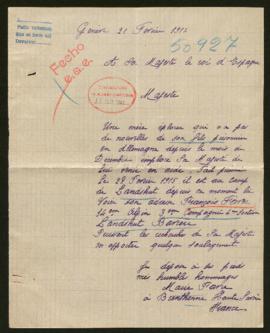 Genève 21 Février 1917
50927
Fecho
A Sa Majesté le roi d'Espagne
Majesté
Une mère éplorée qui n'a pas
de nouvelles de son fils prisonnier
en Allemagne depuis le mois de
Décembre implore Sa Majesté de
lui venir en aide. Fait prisonnier
le 28 Février 1915 il est au camp
de Landshut depuis ce moment là
Voici son adresse François Favre
Alpin 3me Compagnie Section
Landshut Bavière
Puissent les recherches de Sa Majesté
m'apporter quelque soulagement.
Je dépose à ses pieds
mes humbles hommages
Marie Favre
à Haute Savoie
France